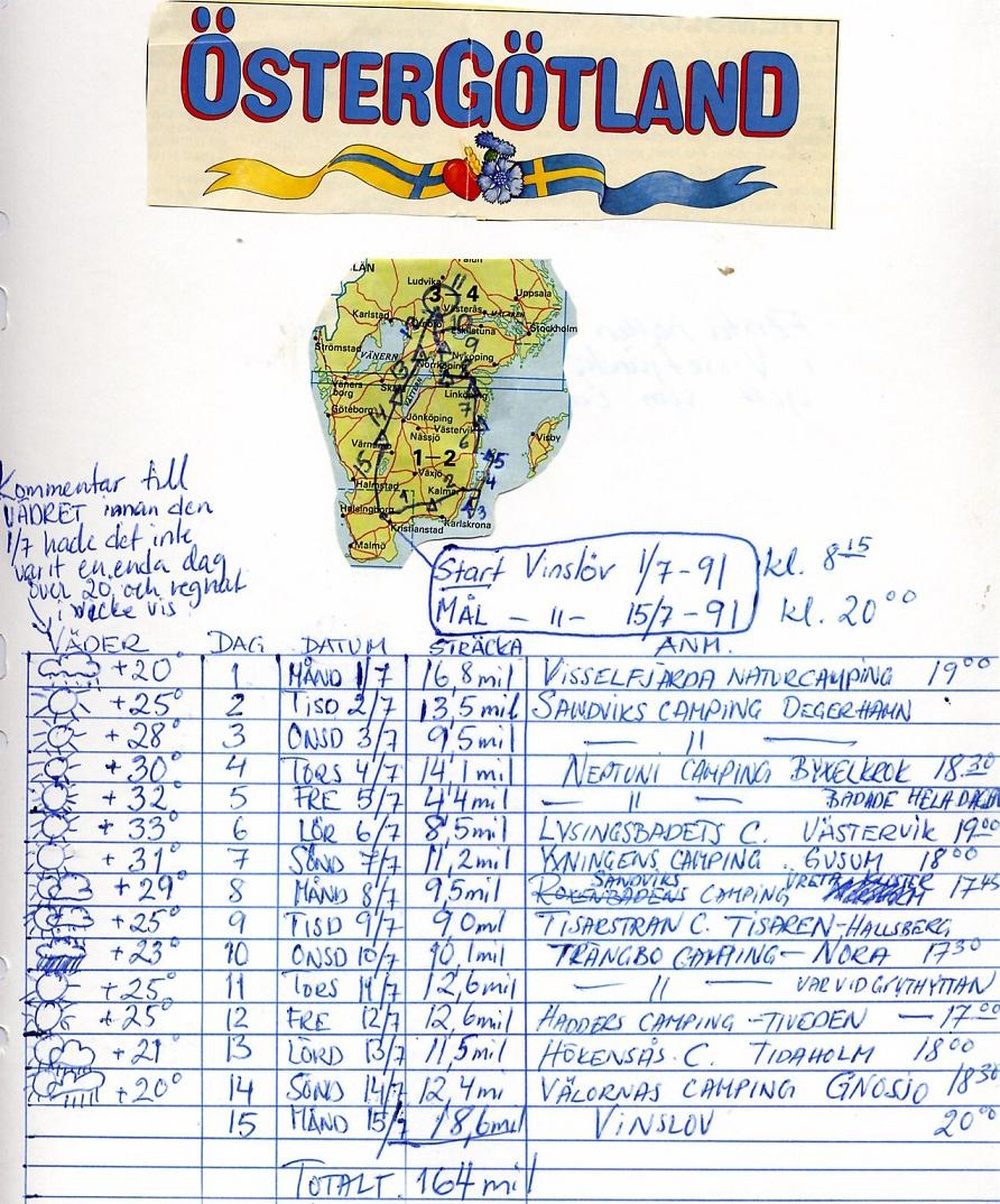 ÖSTERGÖTLAND
LÄN
Falun
Ludvika
11
3-4
Uppsala
Västerås
MÄLAREN
Karlstad
10
Eskilstuna
Stockholm
Strömstad
VÄNERN
9
Nyköping
Norrköping
8
Vänersborg
13
VÄTTERN
Linköping
Göteborg
14
7
Jönköping
Västervik
Nässjö
6
Visby
Värnamo
1-2
5
15
Växjö
4
Halmstad
2
Kalmar
Helsingborg
1
3
Karlskrona
Kristianstad
Malmö
Kommentar till
VÄDRET innan den
1/7 hade det inte
varit en enda dag
över 20, och regnat
i vecke vis
Start Vinslöv 1/7-91 kl. 8 15
MÅL - 11- 15/7-91 kl. 20 00
VÄDER DAG DATUM STRÄCKA ANM.
+20° 1 MÅND 1/7 16,8 mil VISSELFJÄRDA NATURCAMPING 19 00
+25° 2 TISD 2/7 13,5 mil SANDVIKS CAMPING DEGERHAMN
+28° 3 ONSD 3/7 9,5 mil — 11 —
+30° 4 TORS 4/7 14,1 mil NEPTUNI CAMPING BYXELKROK 18 30
+32° 5 FRE 5/7 4,4 mil — 11 — BADADE HELA DAGEN
+33° 6 LÖR 6/7 8,5 mil LYSINGSBADETS C. VÄSTERVIK 19 00
+31° 7 SÖND 7/7 11,2 mil YXNINGENS CAMPING. GUSUM 18 00
+29° 8 MÅND 8/7 9,5 mil SANDVIKS CAMPING VRETA KLOSTER 17 45
+25° 9 TISD 9/7 9,0 mil TISARSTRAN C. TISAREN-HALLSBERG
+23° 10 ONSD 10/7 10,1 mil TRÄNGBO CAMPING - NORA 17 30
+25° 11 TORS 11/7 12,6 mil — 11 — VAR VID GRYTHYTTAN
+25° 12 FRE 12/7 12,6 mil HADDERS CAMPING - TIVEDEN — 17 00
+21° 13 LÖRD 13/7 11,5 mil HÖKENSÅS. C. TIDAHOLM 18 00
+20° 14 SÖND 14/7 12,4 mi VÄLORNAS CAMPING GNOSJÖ 18 30
15 MÅND 15/7 18,6 mil VINSLÖV 20 00
TOTALT. 164 mil